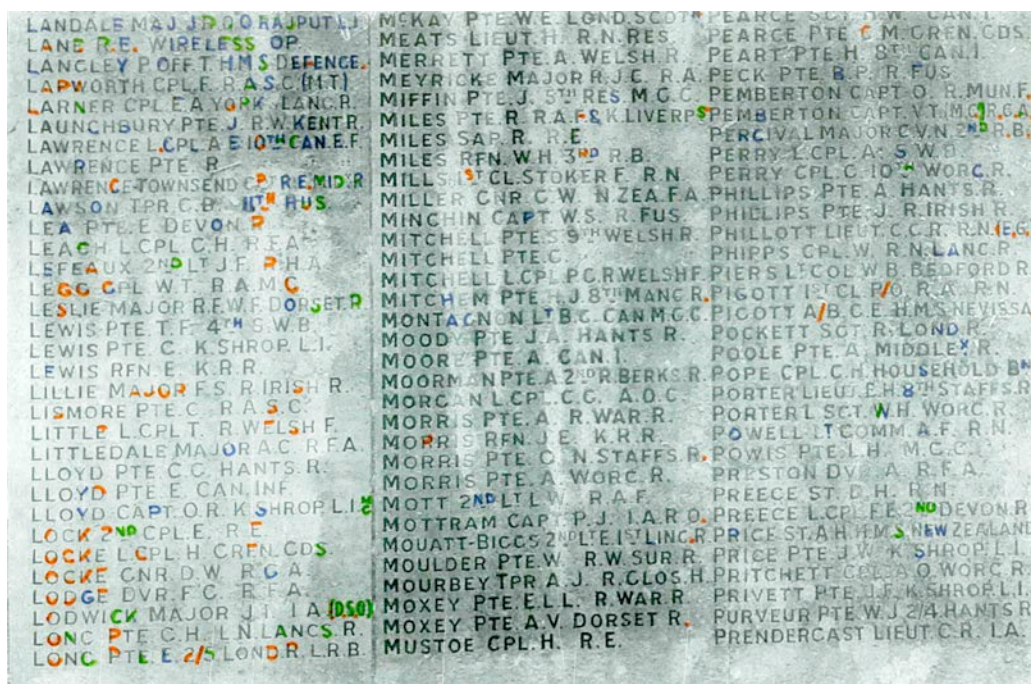 LANDALE MAJ. J.R. D.O. RAJPUT L.I.
LANE R.E. WIRELESS OP.
LANGLEY P.OFF.T. H.M.S DEFENCE.
LAPWORTH CPL.F. R.A.S.C (M.T)
LARNER CPL.E.A. YORK. LANC.R.
LAUNCHBURY PTE.J. R.W.KENT R.
LAWRENCE L.CPL.A.E. 10TH CAN.E.F.
LAWRENCE PTE. R
LAWRENCE-TOWNSEND CPT R.E.MID.R
LAWSON TPR.C.B. 11TH HUS.
LEA PTE.E. DEVON.R
LEACH L.CPL.C.H. R.F.A.
LEFEAUX 2ND LT.J.F. R.H.A.
LEGG CPL W.T. R.A.M.C
LESLIE MAJOR R.F.W.F. DORSET.R
LEWIS PTE.T.F. 4TH S.W.B.
LEWIS PTE. C. K.SHROP. L.I.
LEWIS RFN.E. K.R.R.
LILLIE MAJOR F.S. R.IRISH R.
LISMORE PTE.C. R.A.S.C.
LITTLE L.CPL.T. R.WELSH F.
LITTLEDALE MAJOR A.C. R.F.A.
LLOYD PTE C.C. HANTS.R.
LLOYD PTE. E. CAN.INF
LLOYD CAPT.O.R. K.SHROP.L.I. MC
LOCK 2ND CPL.E. R.E.
LOCKE L.CPL.H. GREN.GDS.
LOCKE GNR.D.W. R.G.A.
LODGE DVR.F.C. R.F.A.
LODWICK MAJOR J.T. I.A. (D.S.O)
LONG PTE C.H. L.N.LANCS.R.
LONG PTE.E. 2/5 LOND.R. L.R.B.
MCKAY PTE.W.E. LOND.SCOT
MEATS LIEUT.H. R.N.RES.
MERRETT PTE.A. WELSH R.
MEYRICKE MAJOR R.J.C. R.A.
MIFFIN PTE.J. 5TH RES M.G.C.
MILES PTE.R. R.A.F. & K.LIVERPS
MILES SAP. R. R.E.
MILES RFN.W.H. 3RD R.B.
MILLS 1ST CL.STOKER F. R.N.
MILLER GNR C.W. N.ZEA.F.A
MINCHIN CAPT.W.S. R.FUS.
MITCHELL PTE.S 9TH WELSH R.
MITCHELL PTE.C.
MITCHELL L.CPL.P.G.R.WELSH F.
MITCHEM PTE.H.J. 8TH MANC R.
MONTAGNON LT B.G. CAN M.G.C.
MOODY PTE.J.A. HANTS R.
MOORE PTE.A. CAN.I.
MOORMAN PTE.A 2ND R.BERKS R.
MORGAN L.CPL.C.G. A.O.C.
MORRIS PTE.A. R.WAR.R.
MORRIS RFN.J.E. K.R.R.
MORRIS PTE.G. N.STAFFS.R.
MORRIS PTE.A. WORC.R.
MOTT 2ND LT.L.W. R.A.F.
MOTTRAM CAPT. P.J. I.A.R.O.
MOUATT-BIGGS 2ND LTE. 1ST LINC.R
MOULDER PTE.W. R.W.SUR.R.
MOURBEY TPR A.J. R.GLOS.H.
MOXEY PTE.E.L.L. R.WAR.R.
MOXEY PTE.A.V. DORSET R.
MUSTOE CPL.H. R.E.
PEARCE SGT. R.W. CAN.I.
PEARCE PTE C.M. GREN.GDS.
PEART PTE.H. 8TH CAN.I.
PECK PTE. B.P. R.FUS.
PEMBERTON CAPT. O. R.MUN.F.
PEMBERTON CAPT.V.T. M.C. R.G.A
PERCIVAL MAJOR C.V.N. 2ND R.B.
PERRY L.CPL.A. S.W.B.
PERRY CPL.C. 10TH WORC.R.
PHILLIPS PTE.A. HANTS R.
PHILLIPS PTE.J. R.IRISH R.
PHILLOTT LIEUT.C.C.R. R.N.
PHIPPS CPL.W. R.N.LANC.R.
PIERS LT COL.W.B. BEDFORD R.
PIGOTT 1ST CL P/O. R.A. R.N.
PIGOTT A/B.C.E. H.M.S.NEVISSA
POCKETT SGT. R. LOND.R.
POOLE PTE. A. MIDDLEX R.
POPE CPL.C.H. HOUSEHOLD BN
PORTER LIEUT.E.H. 8TH STAFFS.R.
PORTER L.SGT.W.H. WORC.R.
POWELL LT COMM.A.F. R.N.
POWIS PTE.L.H. M.G.C.
PRESTON DVR. A. R.F.A.
PREECE ST. D.H. R.N.
PREECE L.CPL.F.E. 2ND DEVON.R
PRICE ST.A.H. H.M.S.NEW ZEALAND
PRICE PTE.J.W. K. SHROP.L.I.
PRITCHETT CPL.A.O. WORC.R.
PRIVETT PTE.J.F. K.SHROP.L.I.
PURVEUR PTE.W.J. 2/4.HANTS R
PRENDERGAST LIEUT.C.R. I.A.